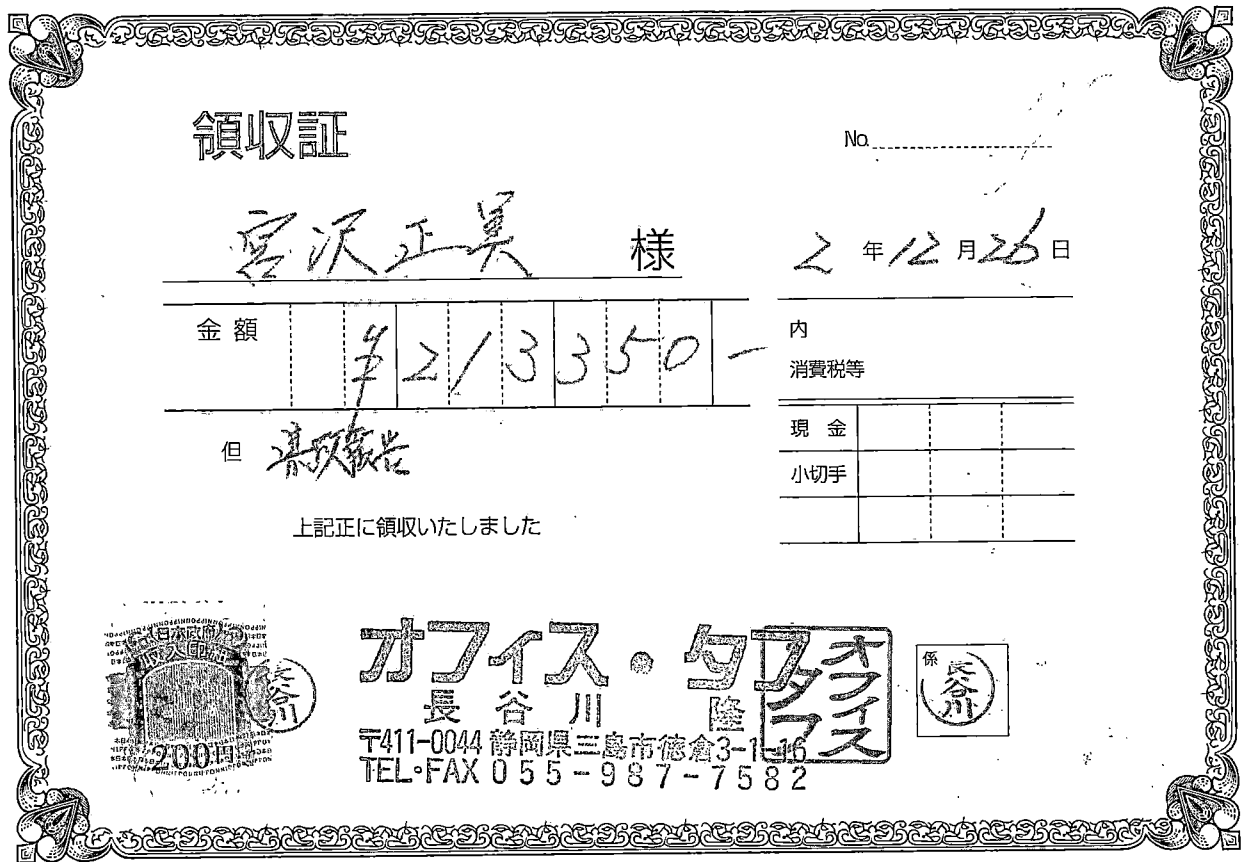 領収証
No.
宮沢正美 様
2 年 12 月 26 日
金額 ¥213350-
内
消費税等
現金
小切手
但 県政報告
上記正に領収いたしました
日本政府
収入印紙
200円
長谷川
オフィス・タフ
長谷川 隆
〒411-0044 静岡県三島市徳倉3-1-16
TEL・FAX 055-987-7582
オフィスタフ
係
長谷川